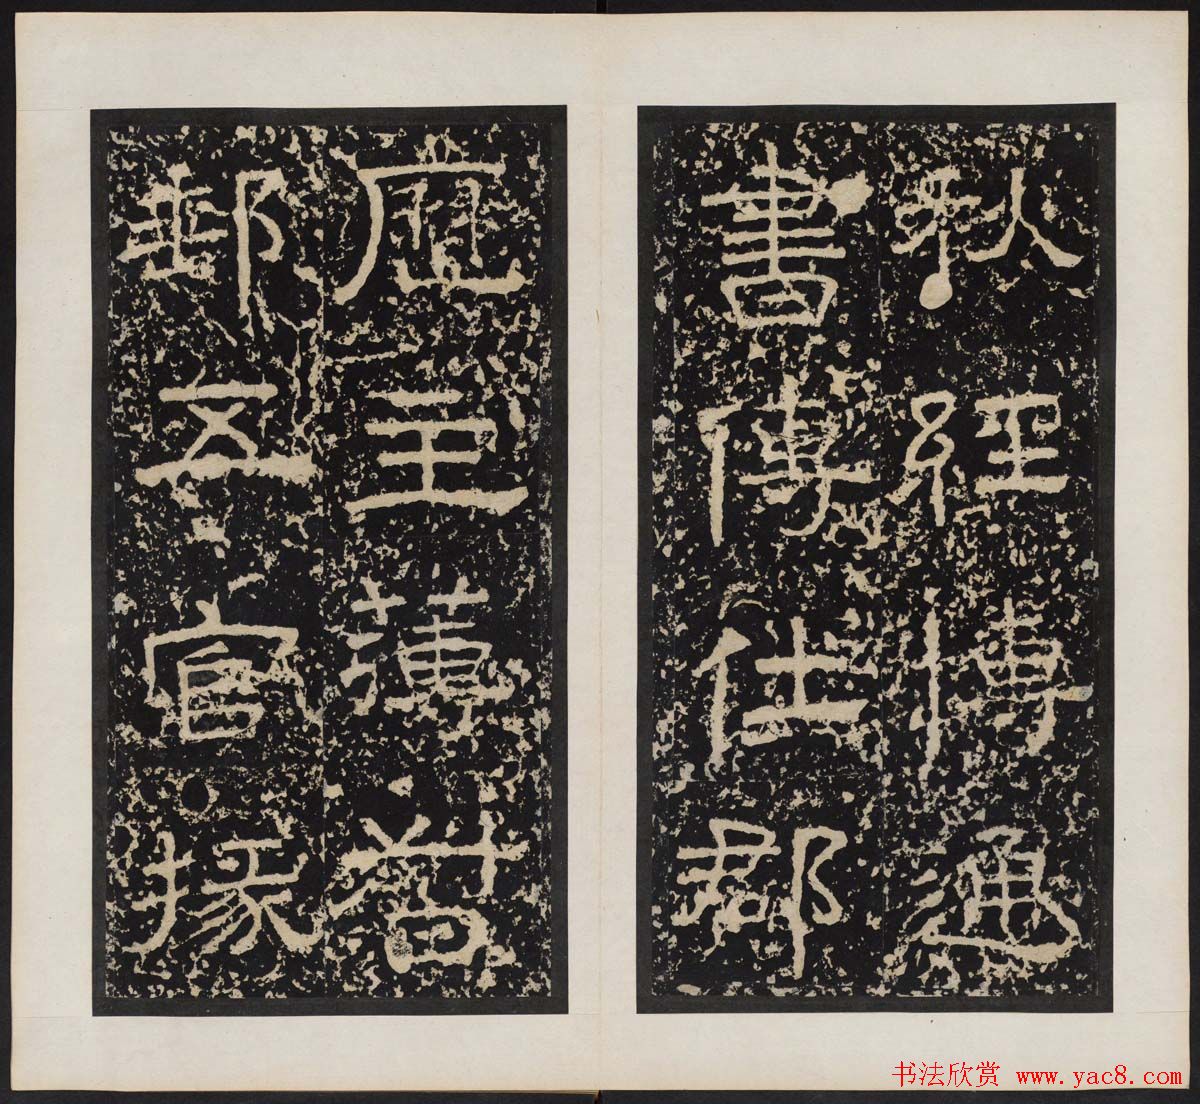 秋經博通
書傳仕郡
歷主薄督
郵五官掾
书法欣赏 www.yac8.com